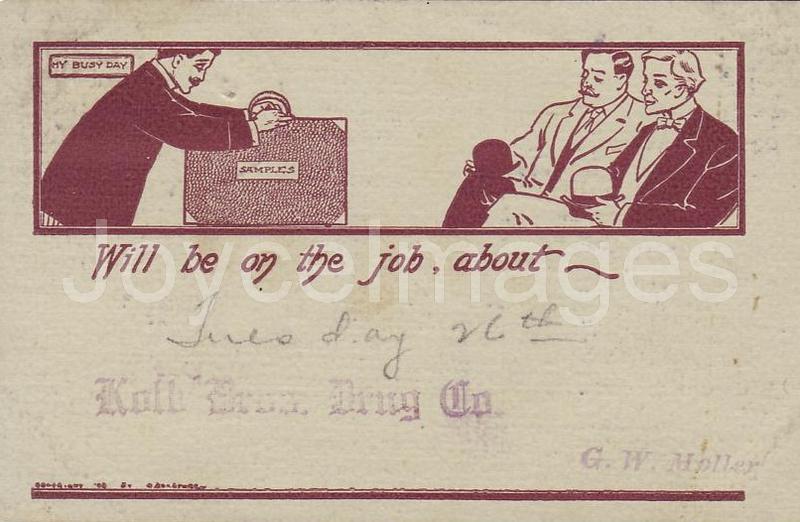 MY BUSY DAY
SAMPLES
Will be on the job, about
JoyceImages
Tuesday 26th
Kolb Bros. Drug Co.
G. W. Moller
COPYRIGHT '08 BY